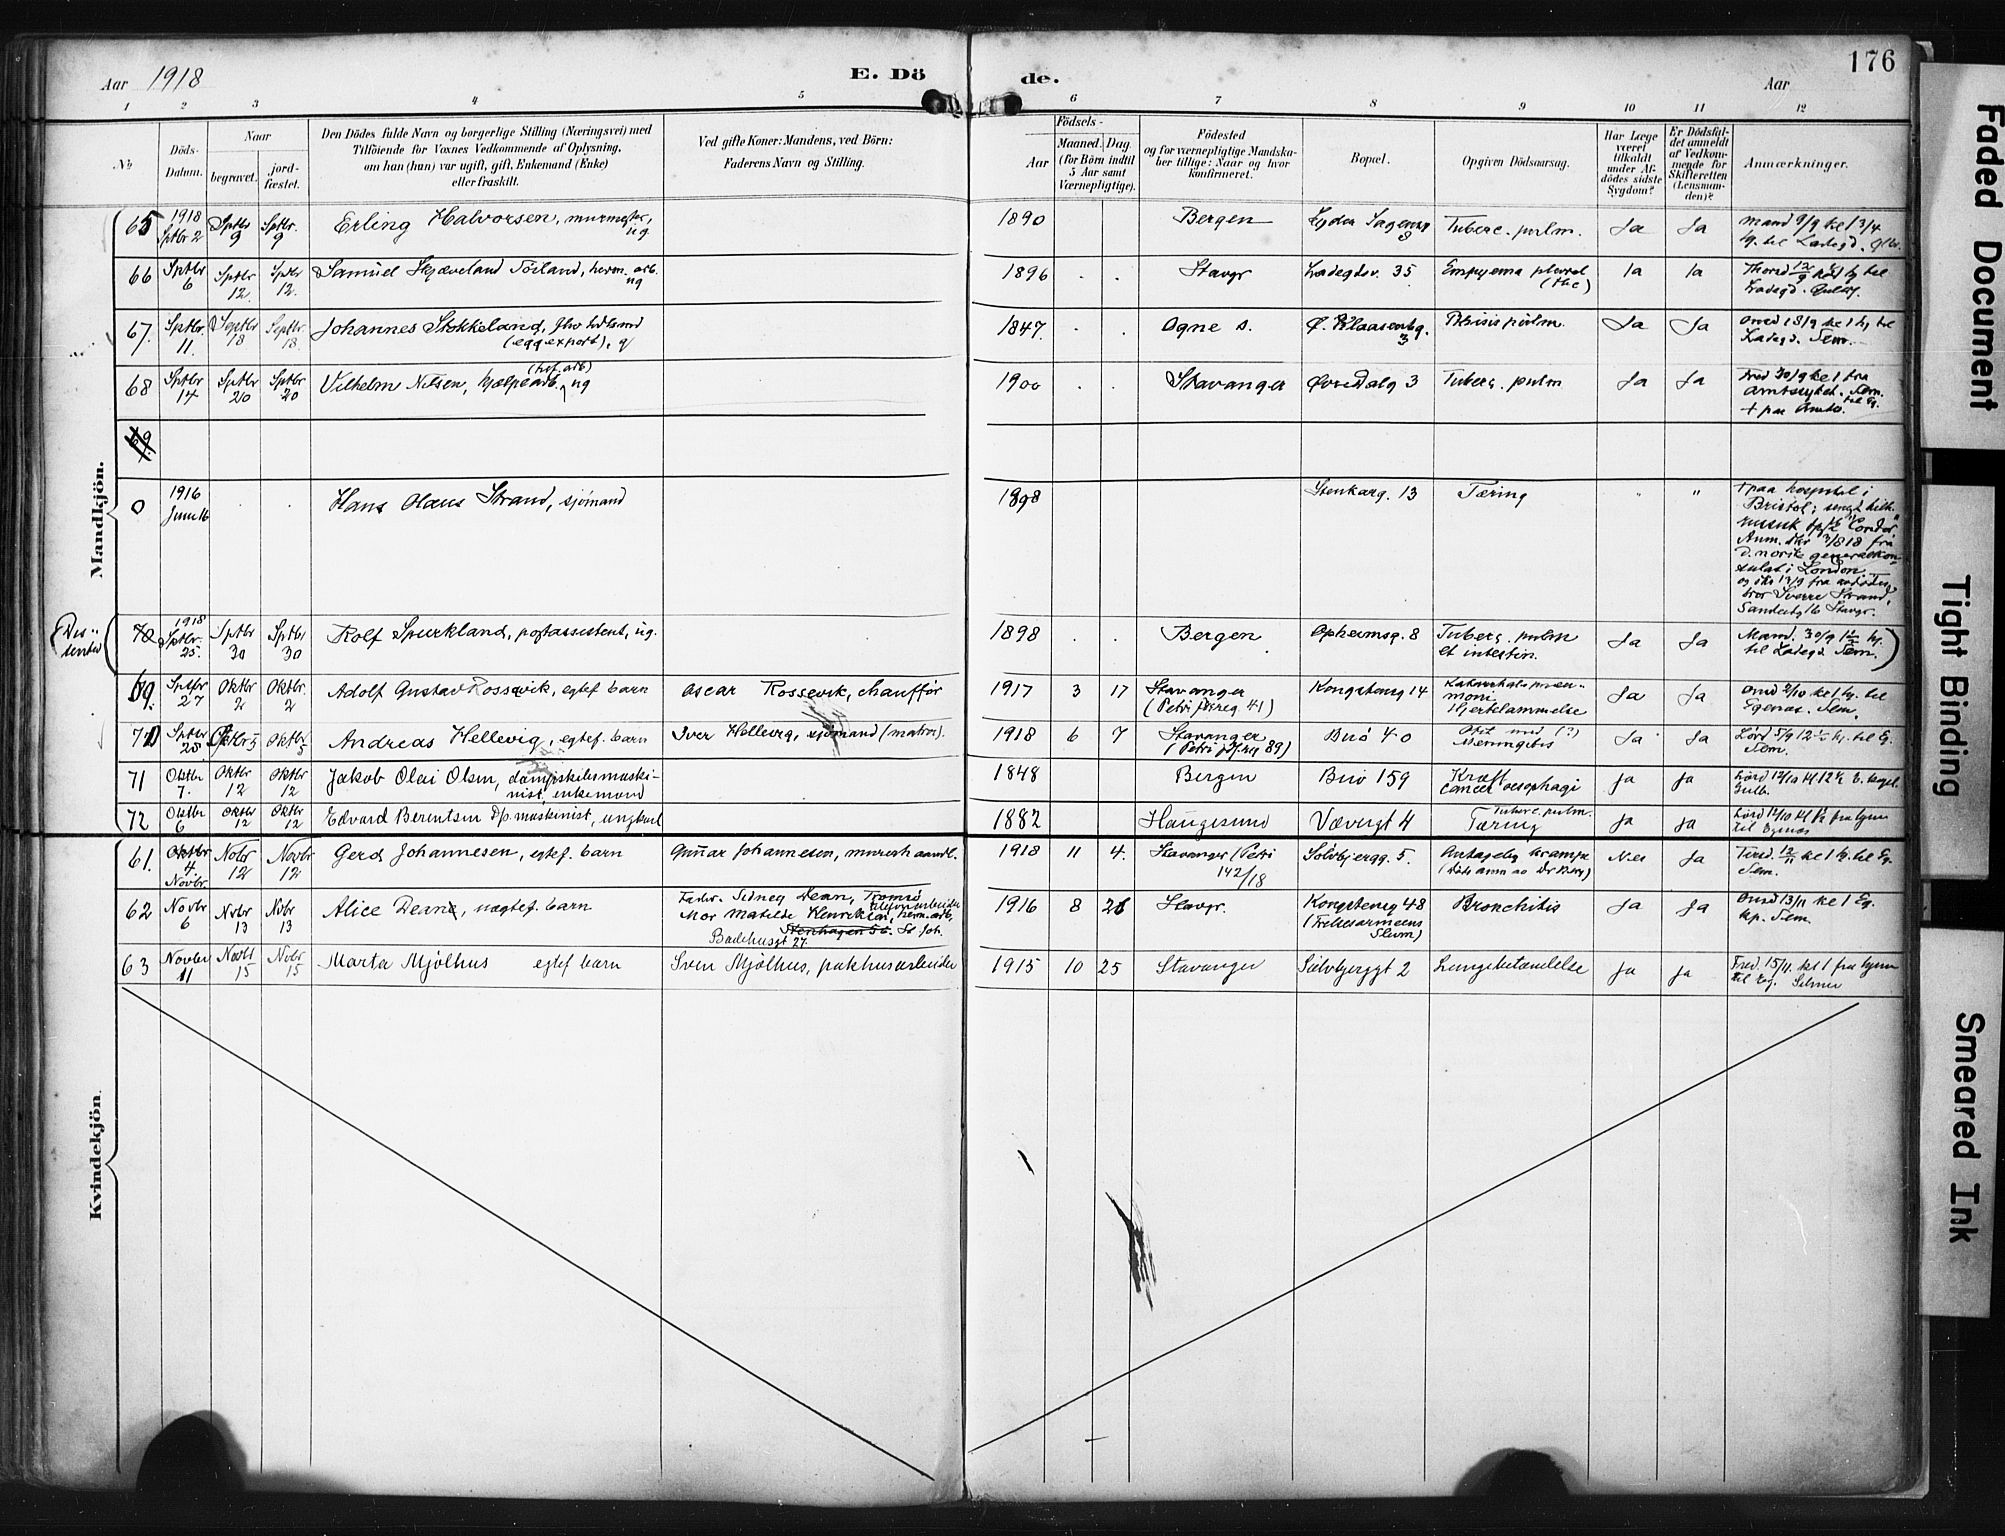 Aar 1918
E. Dö
de.
Aar
176
1 2 3 4 5 6 7 8 9 10 11 12
№
Döds-
Datum.
Naar
begravet.
jord-
fæstet.
Den Dödes fulde Navn og borgerlige Stilling (Næringsvei) med
Tilföiende for Voxnes Vedkommende af Oplysning,
om han (hun) var ugift, gift, Enkemand (Enke)
eller fraskilt.
Ved gifte Koner: Mandens, ved Börn:
Faderens Navn og Stilling.
Födsels-
Aar
Maaned. Dag.
(for Börn indtil
5 Aar samt
Værnepligtige).
Födested
og for værnepligtige Mandska-
ber tillige: Naar og hvor
konfirmeret.
Bopæl.
Opgiven Dödsaarsag.
Har Læge
været
tilkaldt
under Af-
dödes sidste
Sygdom?
Er Dödsfal-
det anmeldt
af Vedkom-
mende for
Skifteretten
(Lensman-
den)?
Anmærkninger.
Mandkjön.
65 1918 Sptbr 2 Sptbr 9 Sptbr. 9 Erling Halvorsen, murmester, ug. 1890 Bergen Lyder Sagensg 8 Tuberc. pulm. Ja Ja mand 9/9 kl 1 3/4
66 Sptbr 6 Sptbr 12 Sptbr 12. Samuel Skjæveland Törland, herm. arb. ug 1896 . . Stavgr Ladegdsv. 35 Empyema pleural (tbc) Ja Ja
67. Sptbr. 11. Septbr 18 Septbr 18. Johannes Stokkeland, fhv hdlsmd (eggexport), g 1847. . . Ogne s. Ø. Klaasenbg. 3 Phtisis pulm. Ja Ja onsd 18/9 kl 1 hj til Ladegd. Sem.
68 Sptbr 14 Sptbr 20 Sptbr 20 Vilhelm Nilsen, hjælpearb. ug 1900 . . Stavanger Øvre Dalg 3 Tuberc. pulm Ja Ja Fred 20/9 kl 1 fra amtssykeh. Sem. til Eg.
69.
0 1916 Juni 16 . . Hans Olaus Strand, sjömand 1898 Stenkarg. 13 Tæring " " + paa hospital i
Bristol;
"Condor"
Anm. 3/8 18 fra
d. norsk generalkon-
sulat i London
bror Sverre Strand,
Sandeidg 16 Stavgr.
(Dis-
senter
70 1918 Sptbr. 25. Sptbr 30 Sptbr 30 Rolf Spurkland, postassistent, ug. 1898 . . Bergen Opheimsg. 8 Tuberc. pulm et intestin. Ja Ja Mand. 30/9 hj. til Ladegd Sem.)
69. Sptbr 27 Oktbr 2 Oktbr. 2 Adolf Gustav Rossevik, egtef barn Oscar Rossevik, chaufför 1917 3 17 Stavanger (Petri 41) Kongsteinsg 14 Katarrhalsk pneumoni Hjertelammelse Ja Ja onsd 2/10 kl 1 hj. til Egenæs. Sem.
70 Sptbr 28 Oktbr 5 Oktbr 5 Andreas Hellevig, egtef. barn Iver Hellevig, sjömand (matros). 1918 6 7 Stavanger (Petri 89) Buö 40 Meningitis Ja Ja til Eg. Sem.
71 Oktbr. 7. Oktbr 12 Oktbr 12 Jakob Olai Olsen, dampskibsmaski-
nist, enkemand 1848 Bergen Buö 159 Kræft cancer oesophagi Ja Ja
72 Oktbr 6 Oktbr 12 Oktbr 12 Edvard Berentsen Dp. maskinist, ungkarl 1882 Haugesund Vævergt 4 Tuberc. pulm. Tæring Ja Ja
Kvindekjön.
61. Oktbr 4 Novbr. Nobr 12 Novbr 12 Gerd Johannesen, egtef. barn Gunnar Johannesen, murerhaandl. 1918 11 4. Stavanger (Petri 142/18 Sölvbjergg. 5. Antagelig krampe Nei Ja Tirsd. 12/11 kl 1 hj. til Eg. Sem.
62 Novbr 6 Novbr 13 Novbr 13 Alice Dean, uegtef. barn Fader. Sidney Dean, Tromsö
Mor Matilde Henriksen, herm. arb,
Stenhagen 56. St Joh.
Badehusgt 27 1916 8 26 Stavgr. Kongsteinsg 48 (Frelsesarmeens Slum) Bronchitis Ja Ja onsd 13/11 kl 1 Eg. kp. Sem.
63 Novber 11 Novbr 15 Novbr 15 Marta Mjölhus egtef barn Sven Mjölhus, pakhusarbeider 1915 10 25 Stavanger Sölvbjerggt 2 Lungebetændelse Ja Ja Fred. 15/11. kl 1 fra hjem til Eg.
Faded Document
Tight Binding
Smeared Ink